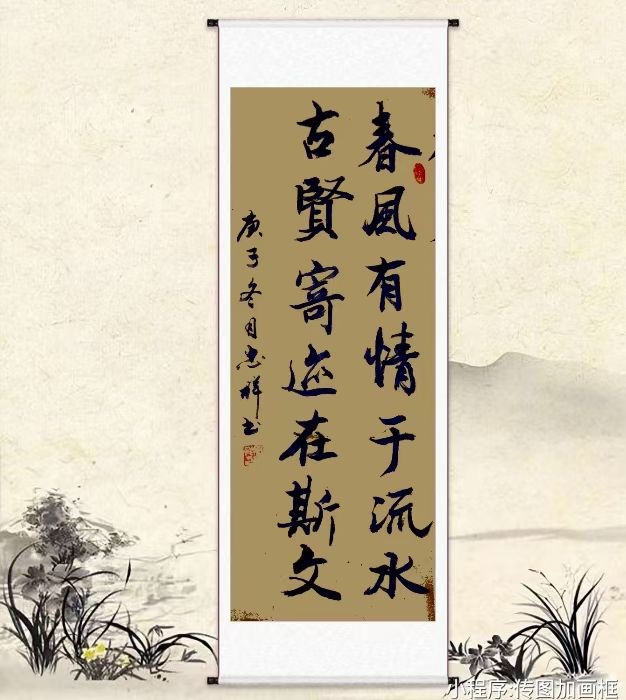 春風有情于流水
古賢寄迹在斯文
庚子冬月忠祥书
小程序:传图加画框